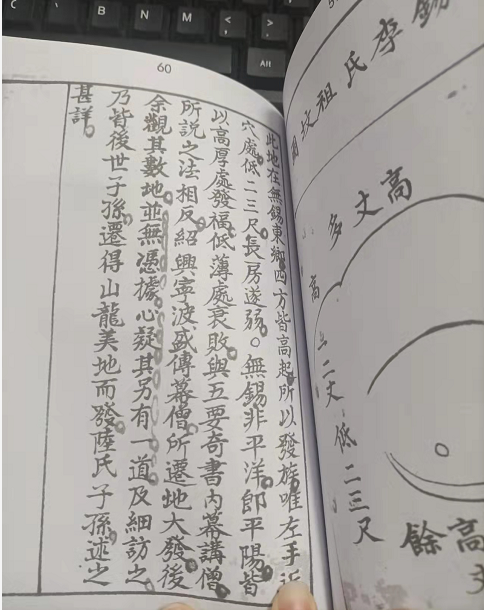 此地在無錫東鄉四方皆高起所以發族唯左手近
穴處低二三尺長房遂弱。無錫非平洋郎平陽皆
以高厚處發福低薄處衰敗與五要奇書內幕講僧
所說之法相反紹興寧波盛傳幕僧所遷地大發後
余觀其數地並無憑據心疑其另有一道及細訪之
乃皆後世子孫遷得山龍美地而發陸氏子孫述之
甚詳
60
李氏祖坟圖
高丈多
高
二丈
低二三尺
高
餘
C
B
N
M
<
>
Alt